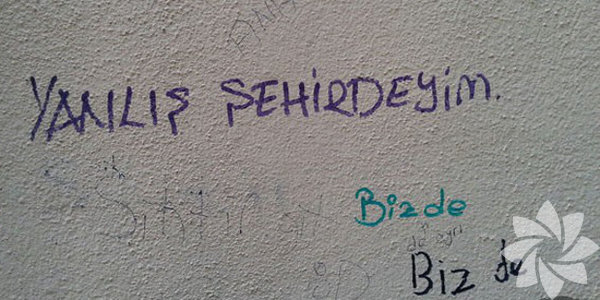 YANILIŞ ŞEHİRDEYİM.
Bizde
Biz de